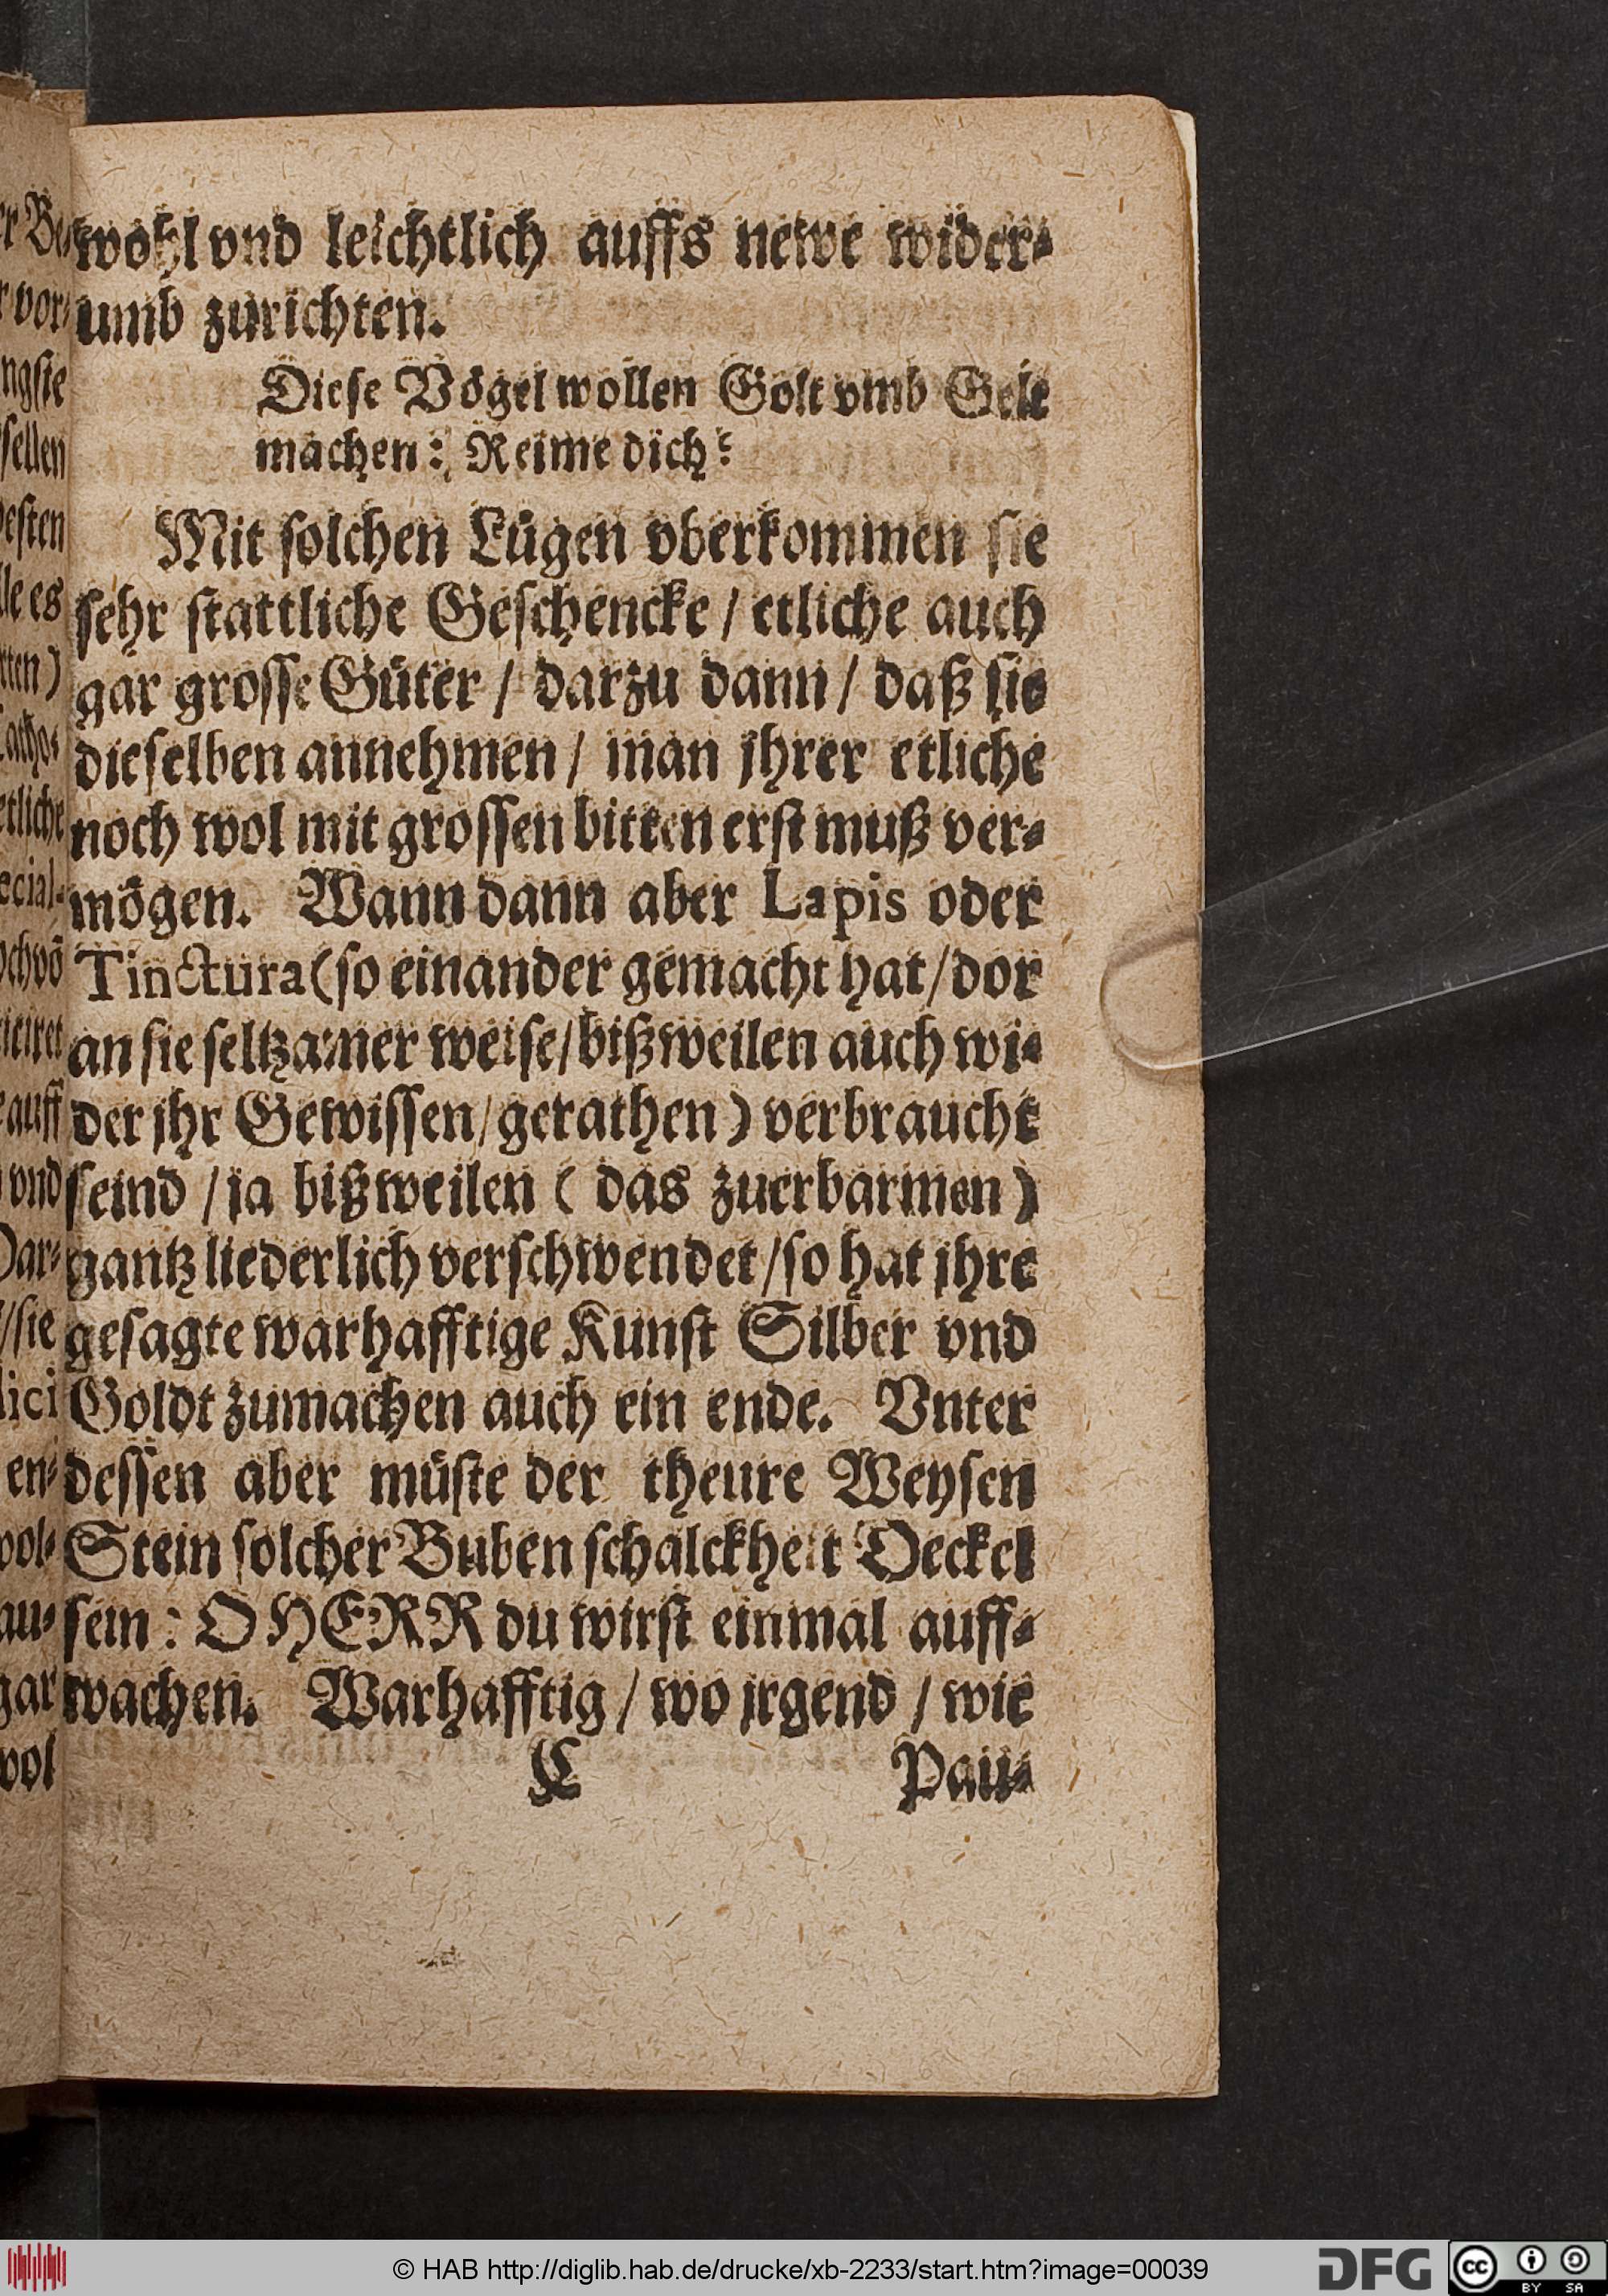 wohl vnd leichtlich auffs newe wider-
umb zurichten.
Diese Vögel wollen Golt vmb Gelt
machen: Reime dich?
Mit solchen Lügen vberkommen sie
sehr stattliche Geschencke / etliche auch
gar grosse Güter / darzu dann / daß sie
dieselben annehmen / man jhrer etliche
noch wol mit grossen bitten erst muß ver-
mögen. Wann dann aber Lapis oder
Tinctura (so einander gemacht hat / dor
an sie seltzamer weise / bißweilen auch wi-
der jhr Gewissen / gerathen) verbraucht
seind / ja bißweilen (das zuerbarmen)
gantz liederlich verschwendet / so hat jhre
gesagte warhafftige Kunst Silber vnd
Goldt zumachen auch ein ende. Vnter
dessen aber müste der theure Weysen
Stein solcher Buben schalckheit Deckel
sein: O HERR du wirst einmal auff-
wachen. Warhafftig / wo jrgend / wie
C Pau-
er Be-
vor-
ngste
sellen
esten
lle es
rten)
Catho-
etliche
ecial-
ochvõ
iciret
auff
vnd
Dar-
/ sie
lici
en-
vol-
au-
gar
wol
© HAB http://diglib.hab.de/drucke/xb-2233/start.htm?image=00039
DFG
cc BY SA